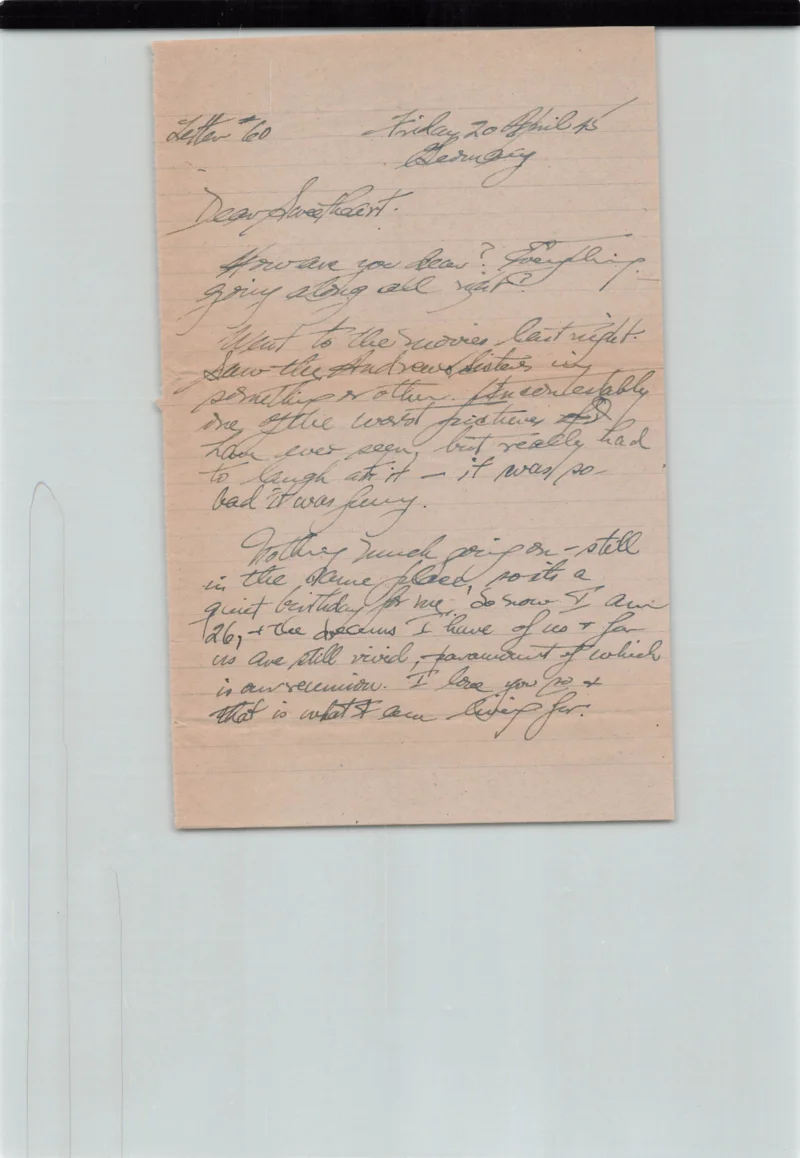 Letter #60
Friday 20 April 45
Germany
Dear Sweetheart.
How are you dear? Everything
going along all right?
Went to the movies last night.
Saw the Andrews Sisters in
something or other. Incontestably
one of the worst pictures I
have ever seen, but really had
to laugh at it — it was so
bad it was funny.
Nothing much going on — still
in the same place, so its a
quiet birthday for me. So now I am
26, + the dreams I have of us + for
us are still vivid, paramount of which
is our reunion. I love you so +
that is what I am living for.